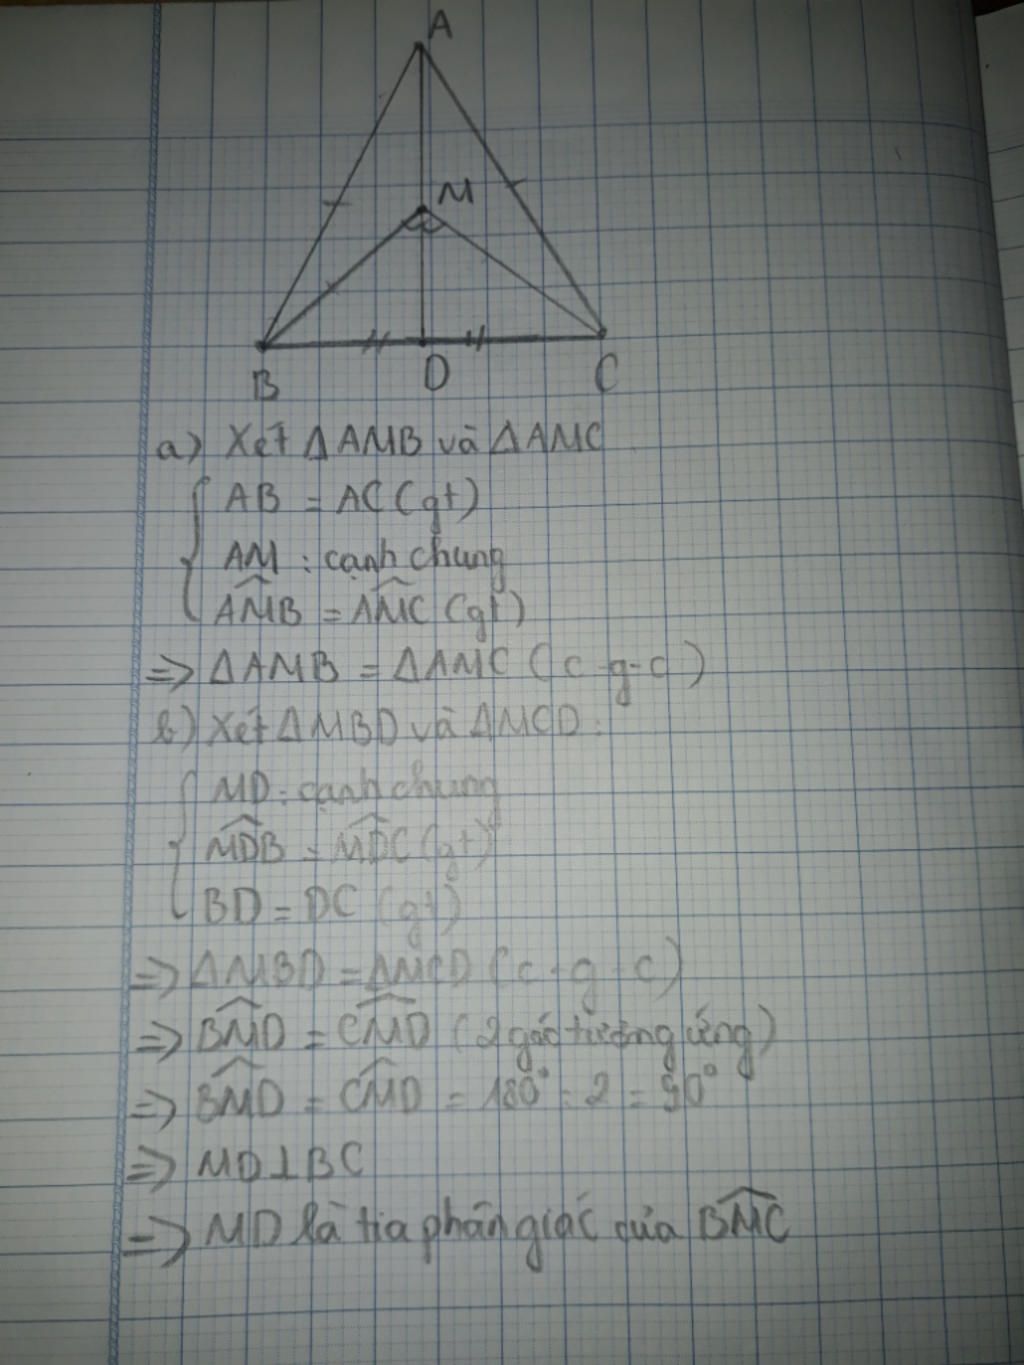 A
M
B D C
a) Xét ΔAMB và ΔAMC
AB = AC (gt)
AM : cạnh chung
AM̂B = AM̂C (gt)
=> ΔAMB = ΔAMC (c-g-c)
b) Xét ΔMBD và ΔMCD:
MD: cạnh chung
MD̂B = MD̂C (gt)
BD = DC (gt)
=> ΔMBD = ΔMCD (c-g-c)
=> BM̂D = CM̂D (2 góc tương ứng)
=> BM̂D = CM̂D = 180° : 2 = 90°
=> MD⊥BC
=> MD là tia phân giác của BM̂C